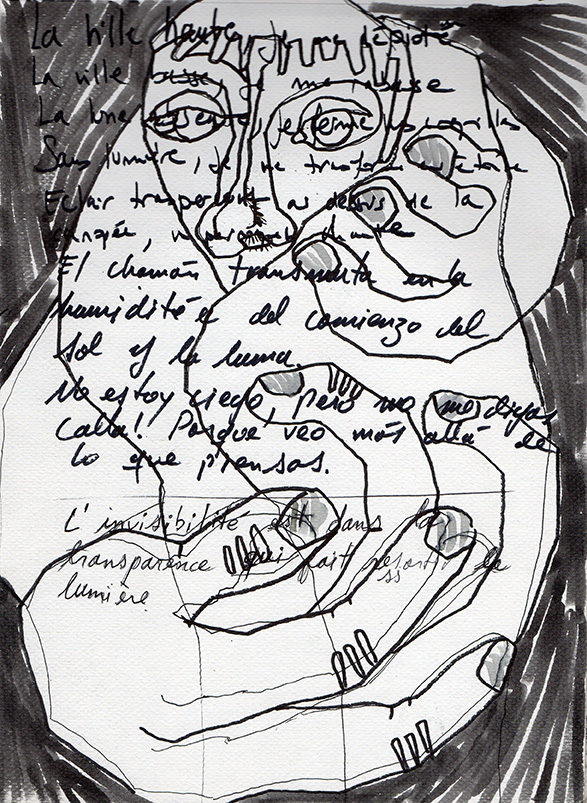 La hille haute, je me
La ville basse, je me
La lune je ferme les
Sans lumière, je me transforme
Eclair transperçant au dessus de la
El chamán transmuta en la
del comienzo del
sol y la luma.
No estoy ciego, pero no me digas
calla! Porque veo más allá de
lo que piensas.
L'invisibilité est dans la
transparence qui fait ressortir la
lumière